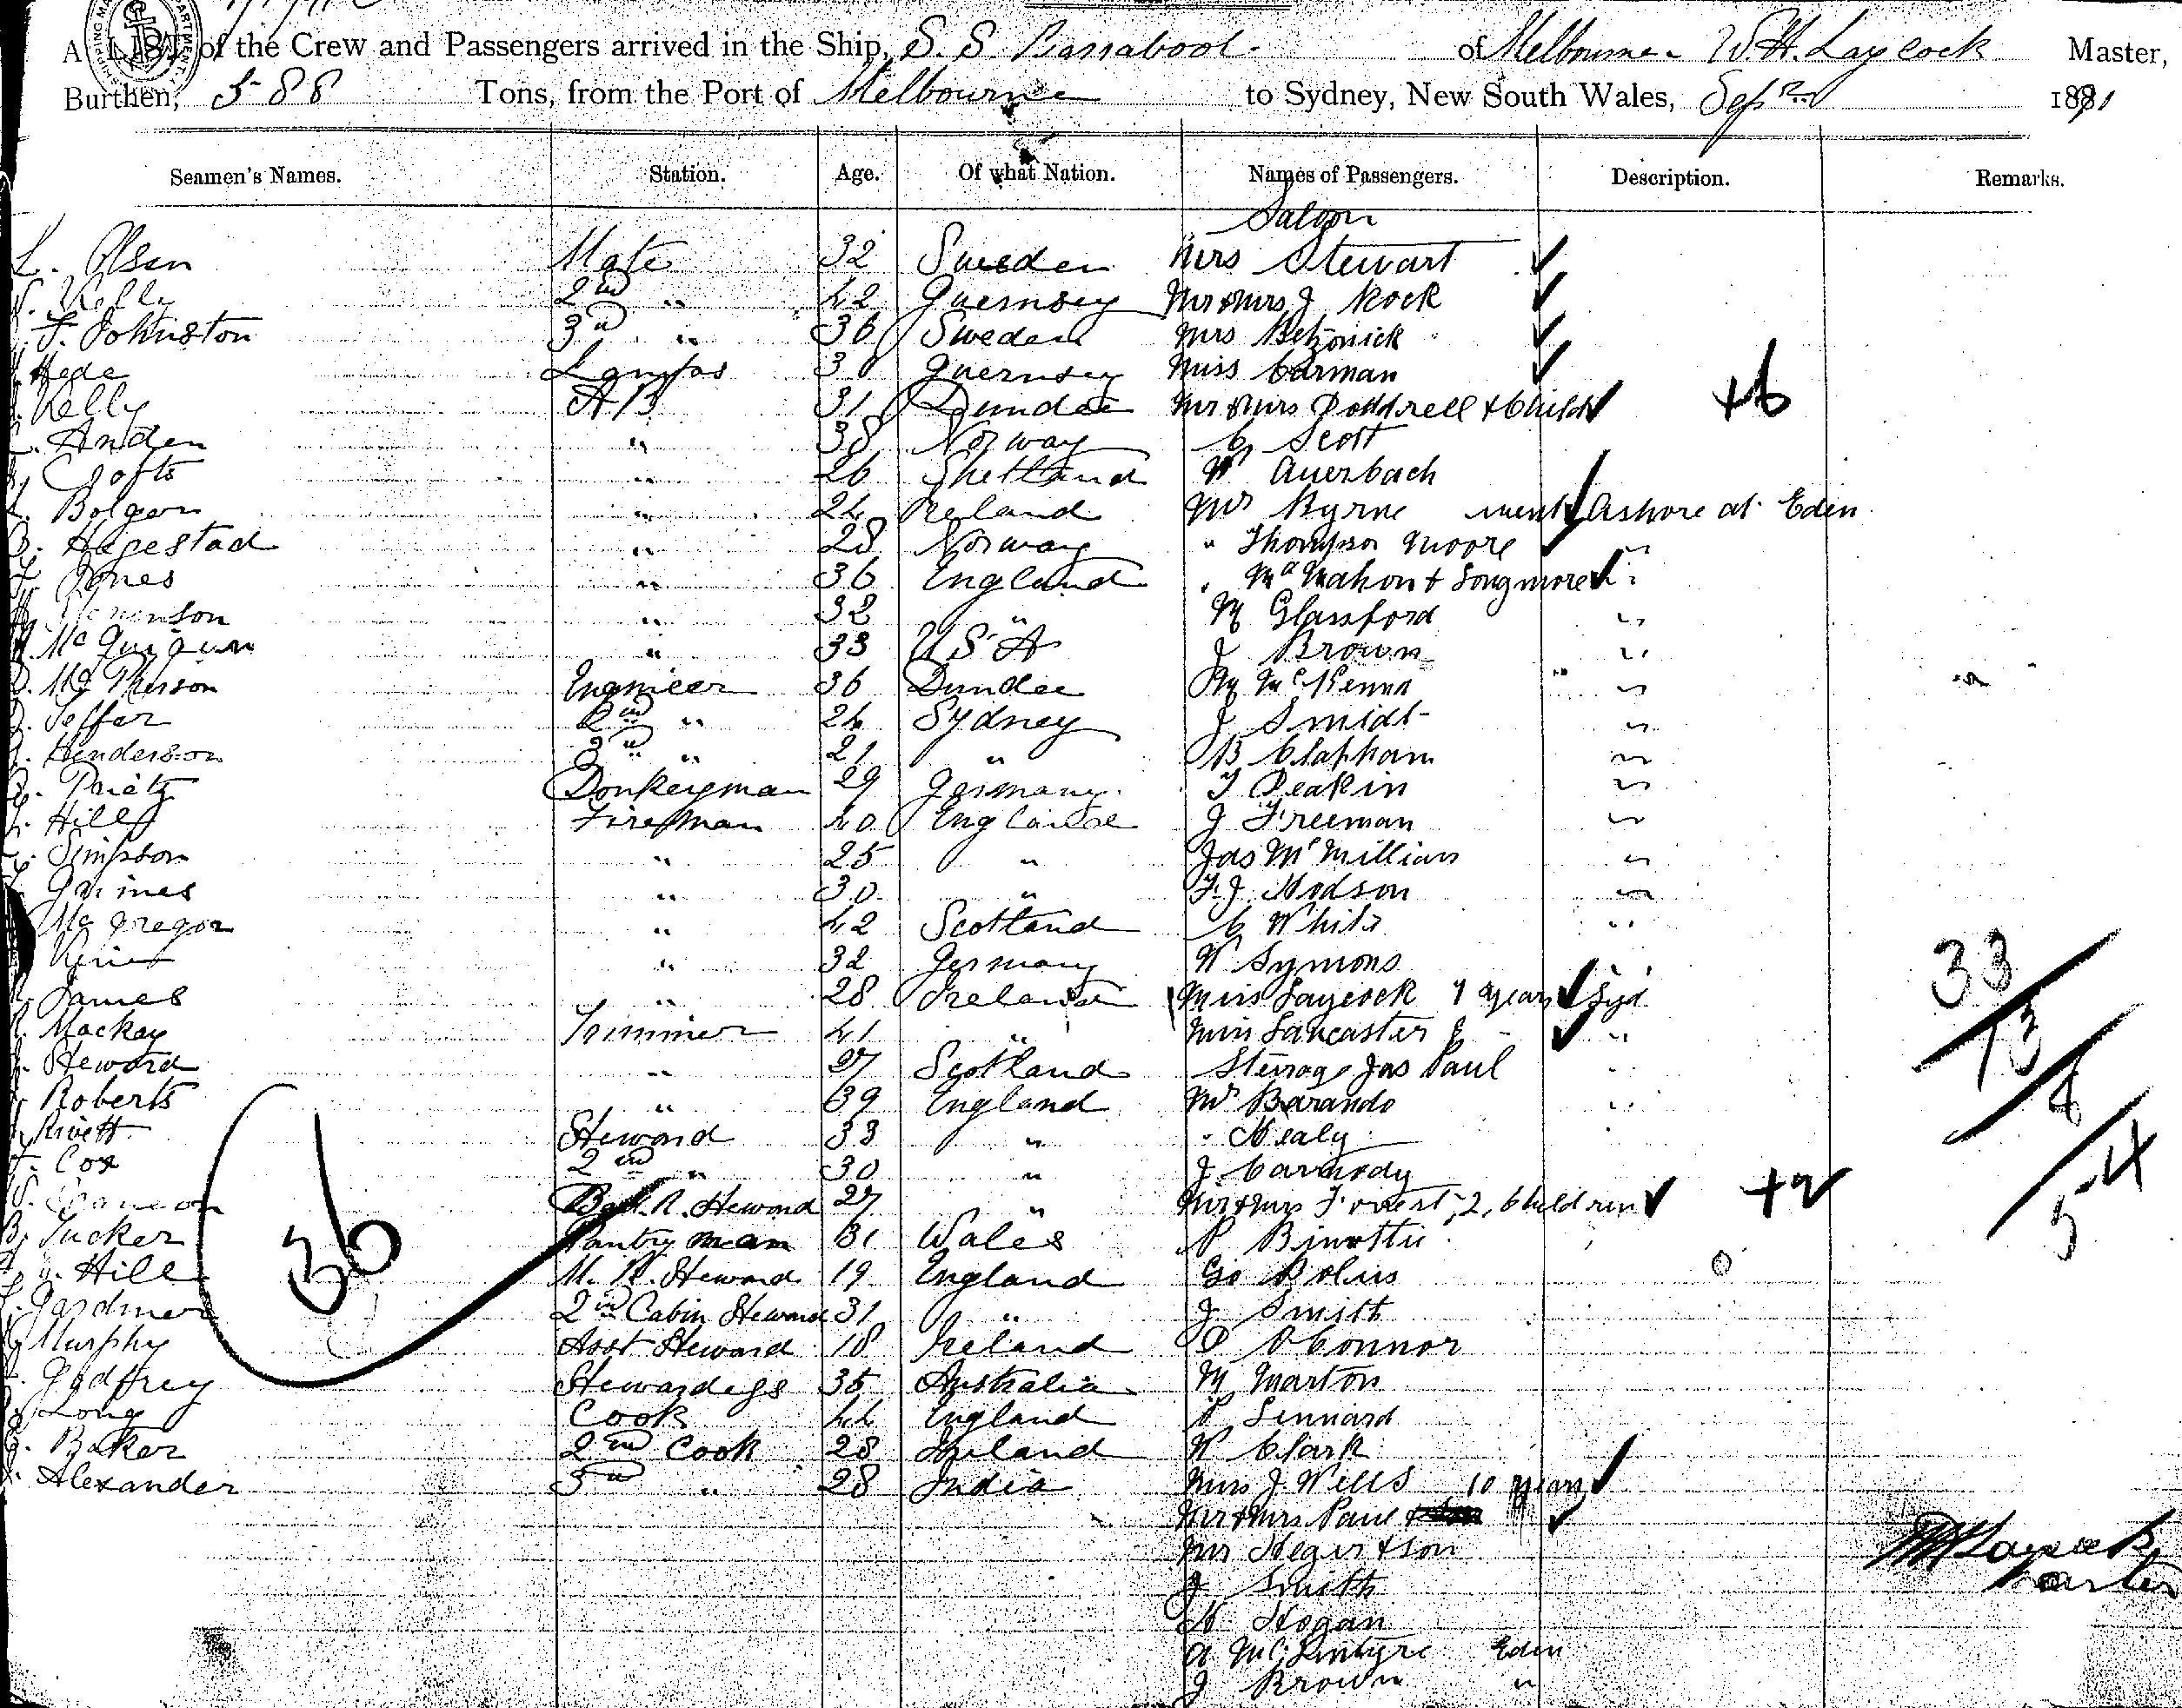 A LIST of the Crew and Passengers arrived in the Ship, S. S. Barrabool of Melbourne W.H. Laycock Master,
Burthen, 588 Tons, from the Port of Melbourne to Sydney, New South Wales, Sepr 1891
Seamen's Names. Station. Age. Of what Nation. Names of Passengers. Description. Remarks.
Saloon
L. Olsen Mate 32 Sweden Mrs Stewart
Kelly 2nd " 42 Guernsey Mr & Mrs J Rock
F. Johnston 3rd " 36 Sweden Mrs
Hede Lamps 30 Guernsey Miss Carman
Kelly AB 31 Dundee Mr & Mrs Doddrell & Child +6
Anden " 38 Norway C Scott
Crofts " 26 Shetland W Auerbach
Bolger " 24 Ireland Mr Byrne went Ashore at Eden
Hagestad " 28 Norway " Thompson Moore "
Jones " 36 England " McMahon & Longmore "
" 32 " M Glassford "
McGuigan " 33 USA J Brown "
McPherson Engineer 36 Dundee McKenna "
Soffer 2nd " 24 Sydney J Smidt "
Henderson 3rd " 21 " B Clapham "
Prietz Donkeyman 29 Germany T Deakin "
Hill Fireman 40 England J Freeman "
Simpson " 25 " Jas McMillian "
Gaines " 30 " F.J. Hodson "
McGregor " 42 Scotland C White "
" 32 Germany W Symons "
James " 28 Ireland Miss Laycock 7 years Syd
Mackay Trimmer 41 " Miss Lancaster 8 - "
Steward " 27 Scotland Steerage Jas Paul "
Roberts " 39 England Mr Barando "
Rivett Steward 33 " " Healy
Cox 2nd " 30 " J Carmody
Cameron R. Steward 27 " Mr & Mrs Forrest, 2, Children +2
B. Tucker Pantry man 31 Wales P
Hill M. R. Steward 19 England Geo Bolus
Gardiner 2nd Cabin Steward 31 " J Smith
Murphy Asst Steward 18 Ireland O'Connor
Godfrey Stewardess 35 Australia M Marton
Long Cook 44 England P Lennard
Baker 2nd Cook 28 Ireland W Clark
Alexander 3rd " 28 India Miss J. Wells 10 years
Mr & Mrs Paul
Mr & son
J Smith
Hogan
A McIntyre Eden
J Brown "
36
33
13
8
54
W H Laycock
Master